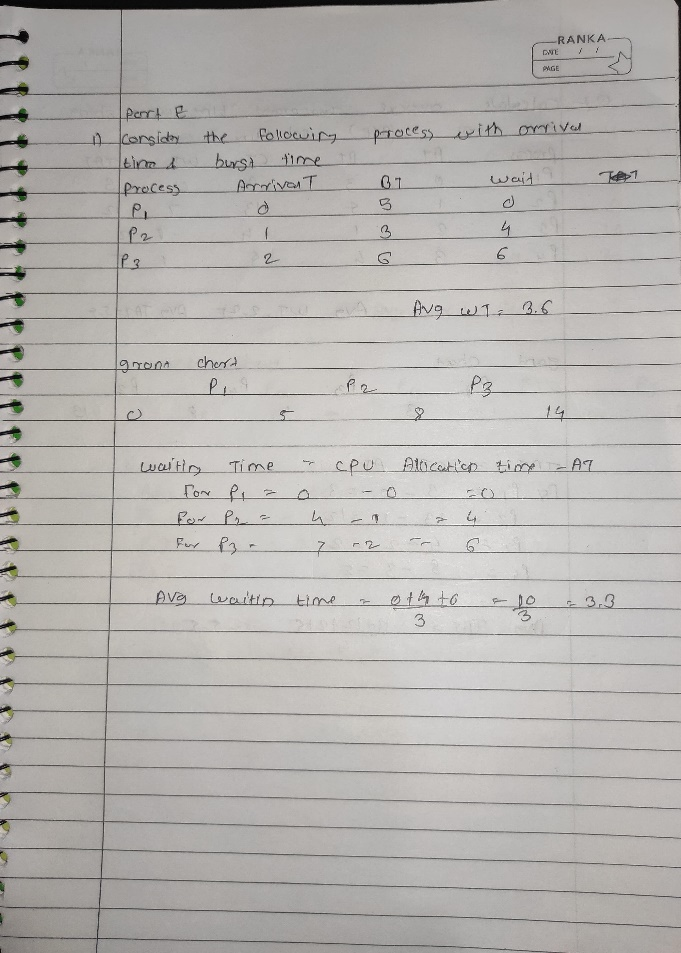 RANKA
DATE / /
PAGE
Part E
1) Consider the following process with arrival
time & burst time
Process ArrivalT BT wait TAT
P1 0 5 0
P2 1 3 4
P3 2 6 6
Avg WT = 3.6
grann chart
P1 P2 P3
0 5 8 14
waitin Time = CPU Allication time - AT
For P1 = 0 - 0 = 0
For P2 = 4 - 1 = 4
For P3 = 7 - 2 = 6
Avg waitin time = 0+4+6 = 10 = 3.3
3 3